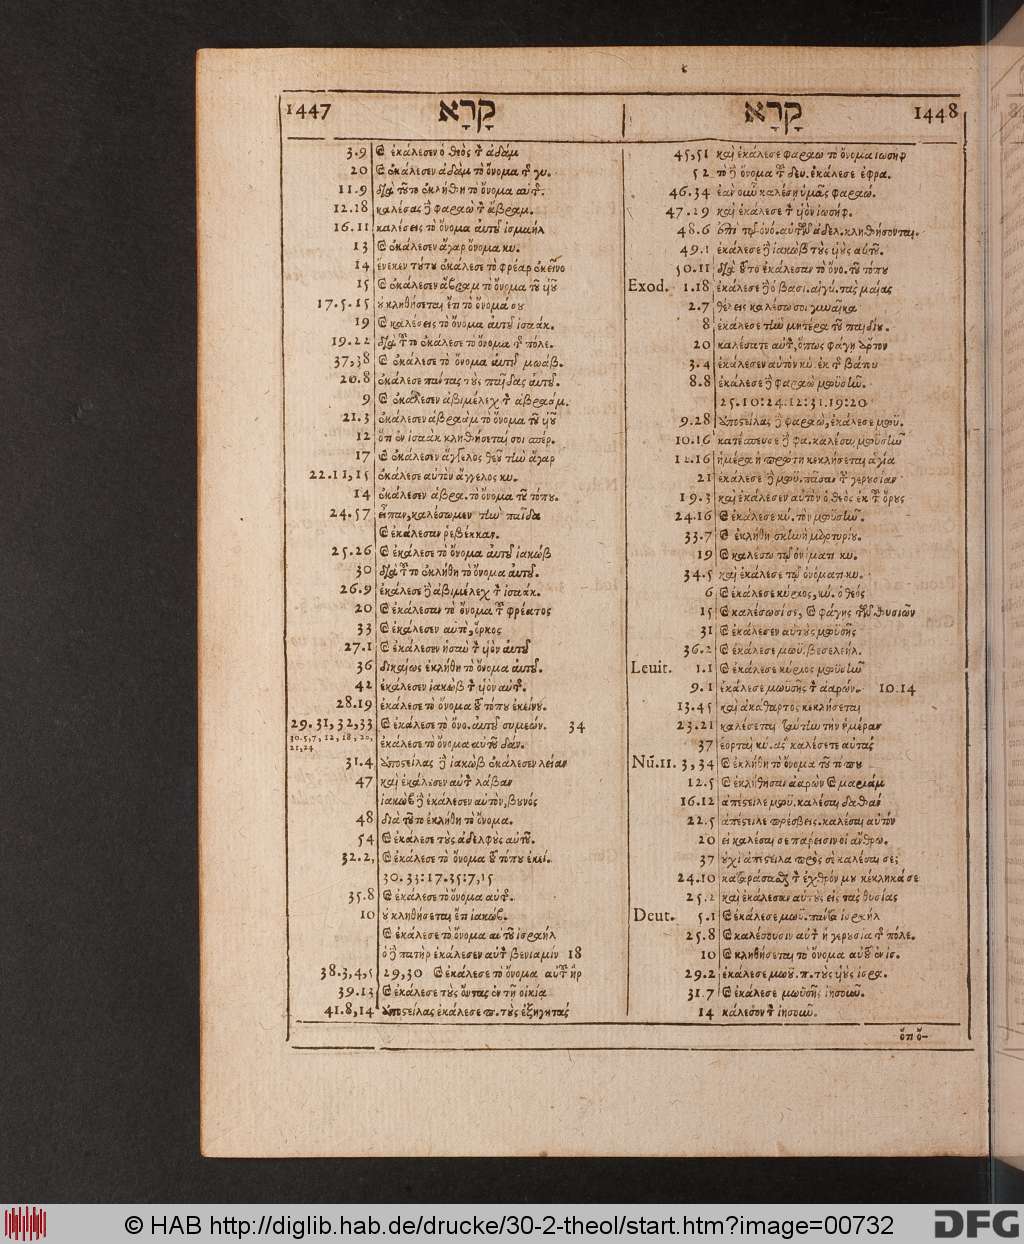 1447 קָרָא
3.9 καὶ ἐκάλεσεν ὁ θεὸς τ̀ ἀδάμ
20 καὶ ἐκάλεσεν ἀδὰμ τὸ ὄνομα τ̀ γυ.
11.9 διὰ τοῦτο ἐκλήθη τὸ ὄνομα αὐτ̀.
12.18 καλέσας δὲ φαραὼ τ̀ ἄβραμ.
16.11 καλέσεις τὸ ὄνομα αὐτοῦ ἰσμαήλ
13 καὶ ἐκάλεσεν ἄγαρ ὄνομα κυ.
14 ἕνεκεν τούτου ἐκάλεσε τὸ φρέαρ ἐκεῖνο
15 καὶ ἐκάλεσεν ἄβραμ τὸ ὄνομα τοῦ ὑοῦ
17.5.15 οὐ κληθήσεται ἔτι τὸ ὄνομά σου
19 καὶ καλέσεις τὸ ὄνομα αὐτοῦ ἰσαάκ.
19.22 διὰ τοῦτο ἐκάλεσε τὸ ὄνομα τ̀ πόλε.
37,38 καὶ ἐκάλεσε τὸ ὄνομα αὐτοῦ μωάβ.
20.8 ἐκάλεσε πάντας τοὺς παῖδας αὐτοῦ.
9 καὶ ἐκάλεσεν ἀβιμέλεχ τ̀ ἀβραάμ.
21.3 ἐκάλεσεν ἀβραὰμ τὸ ὄνομα τοῦ ὑοῦ
12 ὅτι ἐν ἰσαὰκ κληθήσεταί σοι σπέρ.
17 καὶ ἐκάλεσεν ἄγγελος θεοῦ τὴν ἄγαρ
22.11,15 ἐκάλεσε αὐτὸν ἄγγελος κυ.
14 ἐκάλεσεν ἀβρα. τὸ ὄνομα τοῦ τόπου.
24.57 εἶπαν, καλέσωμεν τὴν παῖδα
καὶ ἐκάλεσαν ῥεβέκκαν.
25.26 καὶ ἐκάλεσε τὸ ὄνομα αὐτοῦ ἰακώβ
30 διὰ τοῦτο ἐκλήθη τὸ ὄνομα αὐτοῦ.
26.9 ἐκάλεσε δὲ ἀβιμέλεχ τ̀ ἰσαάκ.
20 καὶ ἐκάλεσαν τὸ ὄνομα τοῦ φρέατος
33 καὶ ἐκάλεσεν αὐτὸ, ὅρκος
27.1 καὶ ἐκάλεσεν ἡσαὺ τ̀ ὑὸν αὐτοῦ
36 δικαίως ἐκλήθη τὸ ὄνομα αὐτοῦ.
42 ἐκάλεσεν ἰακὼβ τ̀ ὑὸν αὐτ̀.
28.19 ἐκάλεσε τὸ ὄνομα τοῦ τόπου ἐκείνου.
29.31,32,33 καὶ ἐκάλεσε τὸ ὄνο. αὐτοῦ συμεών. 34
30.5,7,12,18,20,
21,24 ἐκάλεσε τὸ ὄνομα αὐτοῦ δαν.
31.4 ἀποστείλας δὲ ἰακὼβ ἐκάλεσεν λείαν
47 καὶ ἐκάλεσεν αὐτ̀ λάβαν
ἰακὼβ δὲ ἐκάλεσεν αὐτὸν, βουνός
48 διὰ τοῦτο ἐκλήθη τὸ ὄνομα.
54 καὶ ἐκάλεσε τοὺς ἀδελφοὺς αὐτοῦ.
32.2, καὶ ἐκάλεσε τὸ ὄνομα τοῦ τόπου ἐκεί.
30.33:17.35:7,15
35.8 καὶ ἐκάλεσε τὸ ὄνομα αὐτ̀.
10 οὐ κληθήσεται ἔτι ἰακώβ.
καὶ ἐκάλεσε τὸ ὄνομα αὐτοῦ ἰσραήλ
ὁ δὲ πατὴρ ἐκάλεσεν αὐτ̀ βενιαμίν 18
38.3,4,5 29,30 καὶ ἐκάλεσε τὸ ὄνομα αὐτ̀ ἤρ
39.13 καὶ ἐκάλεσε τοὺς ὄντας ἐν τῇ οἰκίᾳ
41.8,14 ἀποστείλας ἐκάλεσε π. τοὺς ἐξηγητάς
קָרָא 1448
45,51 καὶ ἐκάλεσε φαραω τὸ ὄνομα ιωσηφ
52 τὸ δὲ ὄνομα τοῦ δευ. ἐκάλεσε ἐφρα.
46.34 ἐὰν οὖν καλέσῃ ὑμᾶς φαραώ.
47.29 καὶ ἐκάλεσε τ̀ ὑὸν ἰωσήφ.
48.6 ἐπὶ τῷ ὀνό. αὐτῶν ἀδελ. κληθήσονται.
49.1 ἐκάλεσε δὲ ἰακὼβ τοὺς ὑοὺς αὐτοῦ.
50.11 διὰ τοῦτο ἐκάλεσαν τὸ ὄνο. τοῦ τόπου
Exod. 1.18 ἐκάλεσε δὲ ὁ βασι. αἰγύ. τὰς μαίας
2.7 θέλεις καλέσω σοι γυναῖκα
8 ἐκάλεσε τὴν μητέρα τοῦ παιδίου.
20 καλέσατε αὐτ̀, ὅπως φάγῃ ἄρτον
3.4 ἐκάλεσεν αὐτὸν κύ. ἐκ τ̀ βάτου
8.8 ἐκάλεσε δὲ φαραὼ μωϋσῆν.
25.10:24.12:31.19:20
9.28 ἀποστείλας δὲ φαραὼ, ἐκάλεσε μωϋ.
10.16 κατέσπευσε δὲ φα. καλέσαι μωϋσῆν
12.16 ἡμέρα ἡ πρώτη κεκλήσεται ἁγία
21 ἐκάλεσε δὲ μωϋ. πᾶσαν τ̀ γερουσίαν
19.3 καὶ ἐκάλεσεν αὐτὸν ὁ θεὸς ἐκ τοῦ ὄρους
24.16 καὶ ἐκάλεσε κύ. τὸν μωϋσῆν.
33.7 καὶ ἐκλήθη σκηνὴ μαρτυρίου.
19 καὶ καλέσω τῷ ὀνόματι κυ.
34.5 καὶ ἐκάλεσε τῷ ὀνόματι κυ.
6 καὶ ἐκάλεσε κύριος, κύ. ὁ θεός
15 καὶ καλέσωσί σε, καὶ φάγῃς τῶν θυσιῶν
31 καὶ ἐκάλεσεν αὐτοὺς μωϋσῆς
36.2 καὶ ἐκάλεσε μωϋ. βεσελεήλ.
Leuit. 1.1 καὶ ἐκάλεσε κύριος μωϋσῆν
9.1 ἐκάλεσε μωϋσῆς τ̀ ἀαρών. 10.14
13.45 καὶ ἀκάθαρτος κεκλήσεται
23.21 καλέσεται ταύτην τὴν ἡμέραν
37 ἑορταὶ κυ. ἃς καλέσετε αὐτάς
Nū.11. 3,34 καὶ ἐκλήθη τὸ ὄνομα τοῦ τόπου
12.5 καὶ ἐκλήθησαν ἀαρὼν καὶ μαριάμ
16.12 ἀπέστειλε μωϋ. καλέσαι δαθάν
22.5 ἀπέστειλε πρέσβεις. καλέσαι αὐτόν
20 εἰ καλέσαι σε πάρεισιν οἱ ἄνθρω.
37 οὐχὶ ἀπέστειλα πρὸς σὲ καλέσαι σε;
24.10 καταρᾶσθαι τ̀ ἐχθρόν μου κέκληκά σε
25.2 καὶ ἐκάλεσαν αὐτοὺς εἰς τὰς θυσίας
Deut. 5.1 καὶ ἐκάλεσε μωϋ. πάντα ἰσραήλ
25.8 καὶ καλέσουσιν αὐτ̀ ἡ γερουσία τ̀ πόλε.
10 καὶ κληθήσεται τὸ ὄνομα αὐτοῦ ἐν ἰσ.
29.2 ἐκάλεσε μωϋ. π. τοὺς ὑοὺς ἰσρα.
31.7 καὶ ἐκάλεσε μωϋσῆς ἰησοῦν.
14 κάλεσον τ̀ ἰησοῦν.
ὅτι ὄ-
© HAB http://diglib.hab.de/drucke/30-2-theol/start.htm?image=00732
DFG